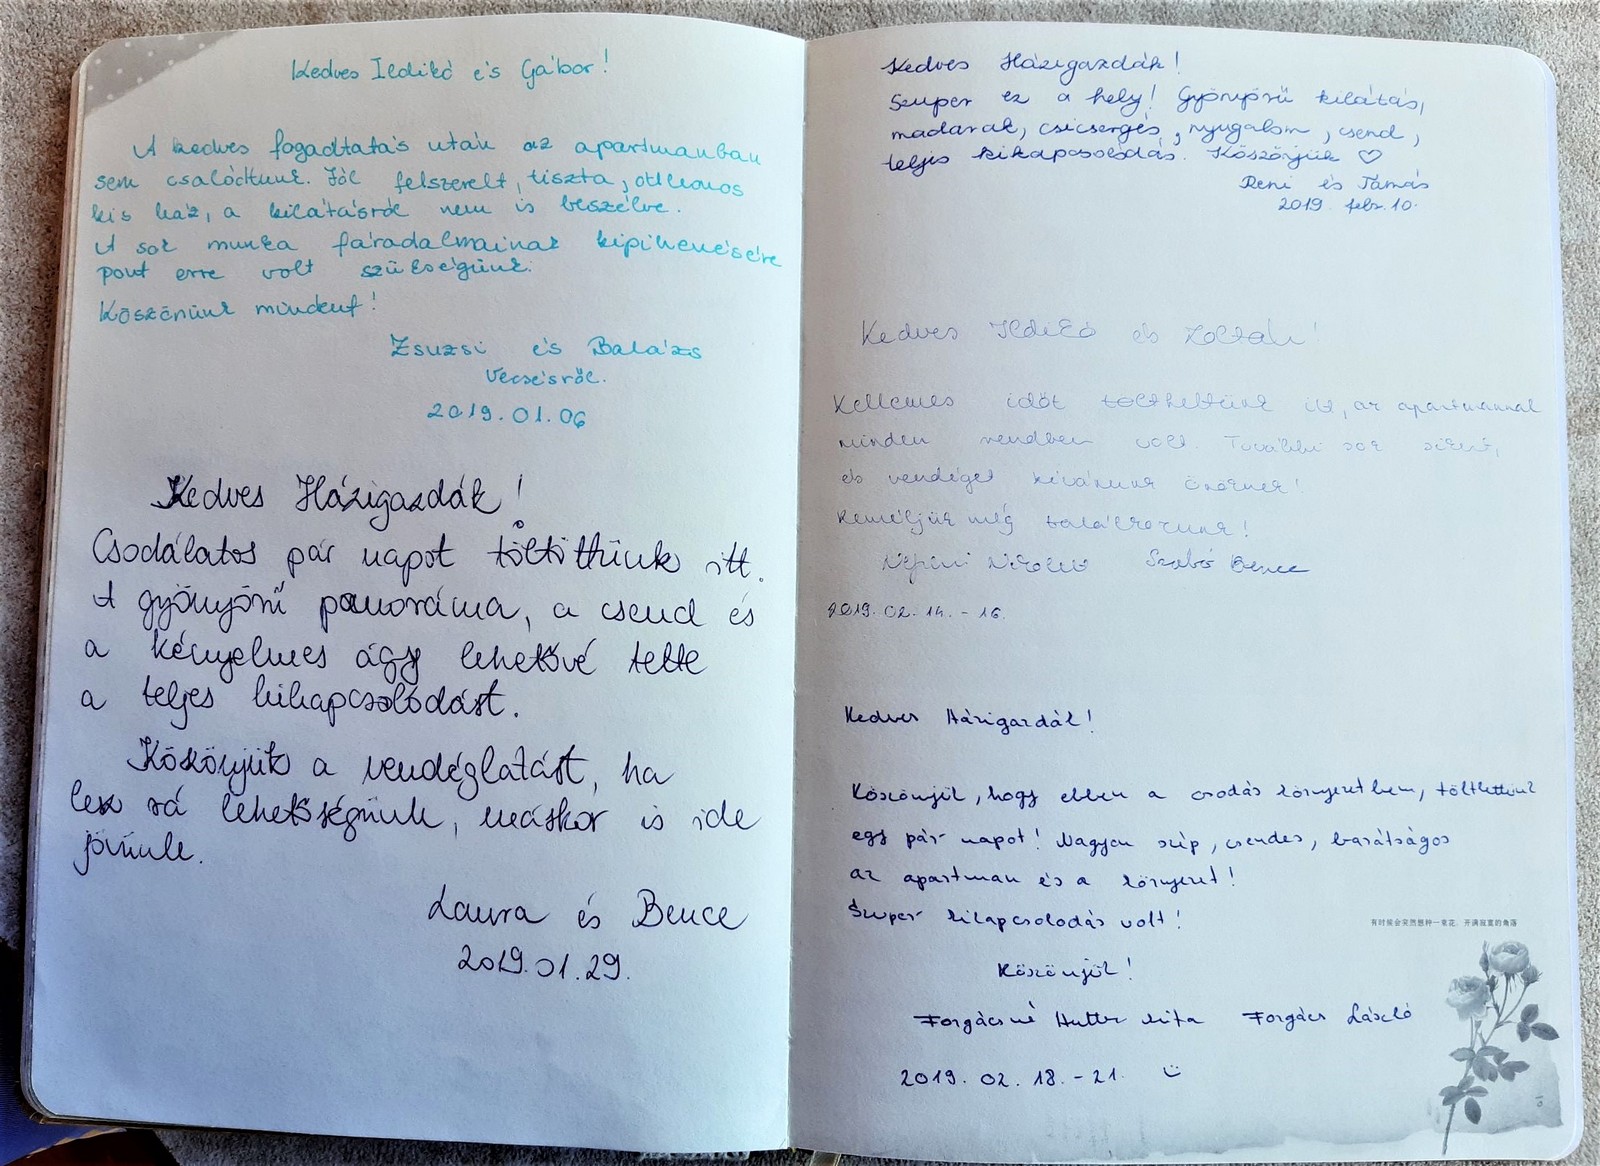 Kedves Ildikó és Gábor!
A kedves fogadtatás után az apartmanban
sem csalódtunk. Jól felszerelt, tiszta, otthonos
kis ház, a kilátásról nem is beszélve.
A sok munka fáradalmainak kipihenésére
pont erre volt szükségünk.
Köszönünk mindent!
Zsuzsi és Balázs
Vecsésről.
2019.01.06
Kedves Házigazdák!
Csodálatos pár napot töltöttünk itt.
A gyönyörű panoráma, a csend és
a kényelmes ágy lehetővé tette
a teljes kikapcsolódást.
Köszönjük a vendéglátást, ha
lesz rá lehetőségünk, máskor is ide
jövünk.
Laura és Bence
2019.01.29.
Kedves Házigazdák!
Szuper ez a hely! Gyönyörű kilátás,
madarak, csicsergés, nyugalom, csend,
teljes kikapcsolódás. Köszönjük ♡
Reni és Tamás
2019. febr. 10.
Kedves Ildikó és Zoltán!
Kellemes időt tölthettünk itt, az apartmannal
minden rendben volt. További sok sikert,
és vendéget kívánunk Önöknek!
Reméljük még találkozunk!
Szabó Bence
2019. 02. 14. - 16.
Kedves Házigazdák!
Köszönjük, hogy ebben a csodás környezetben, tölthettünk
egy pár napot! Nagyon szép, csendes, barátságos
az apartman és a környezet!
Szuper kikapcsolodás volt!
Köszönjük!
Forgácsné Hutter Rita Forgács László
2019. 02. 18. - 21. ☺
有时候会突然想种一束花，开满寂寞的角落